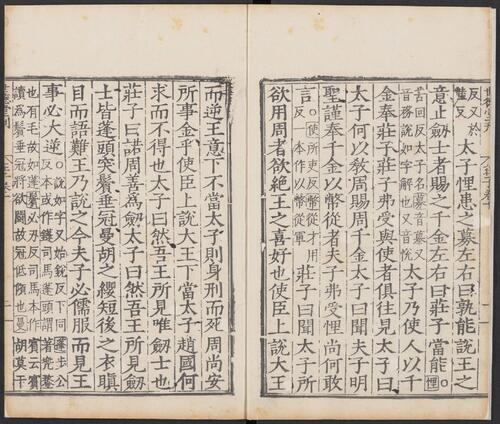 反又於
隻反
太子悝患之募左右曰孰能說王之
意止劒士者賜之千金左右曰莊子當能
○悝
苦回反太子名募音慕又
音務說如字解也又音悅
太子乃使人以千
金奉莊子莊子弗受與使者俱往見太子曰
太子何以敎周賜周千金太子曰聞夫子明
聖謹奉千金以幣從者夫子弗受悝尚何敢
言
○使所吏反幣從才用
反 本作以幣從軍
莊子曰聞太子所
欲用周者欲絕王之喜好也使臣上說大王
而逆王意下不當太子則身刑而死周尚安
所事金乎使臣上說大王下當太子趙國何
求而不得也太子曰然吾王所見唯劒士也
莊子曰諾周善爲劒太子曰然吾王所見劒
士皆蓬頭突鬢垂冠曼胡之纓短後之衣瞋
目而語難王乃說之今夫子必儒服而見王
事必大逆
○說如字又始銳反下同蓬步公
反本或作鋒司馬蓬頭謂著兜鍪
也有毛故如蓬鬢必刃反司馬本作賓云賓
讀爲鬢垂冠將欲鬭故冠低傾也曼胡莫干